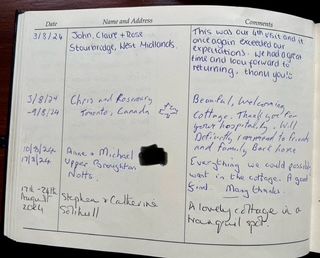 Date Name and Address Comments
3/8/24 John, Claire + Rose
Stourbridge, West Midlands.
This was our 4th visit and it
once again exceeded our
expectations. We had a great
time and look forward to
returning. thank you!!
3/8/24 Chris and Rosemary
9/8/24 Toronto, Canada
Beautiful, Welcoming
Cottage. Thank you for
your hospitality. Will
Definitely recommend to friends
and family Back home
10/8/24 Anne + Michael
17/8/24 Upper Broughton
Notts.
Everything we could possibly
want in the cottage. A good
find. Many thanks.
17th - 24th
August
2024
Stephen & Catherine
Solihull
A lovely cottage in a
tranquil spot.